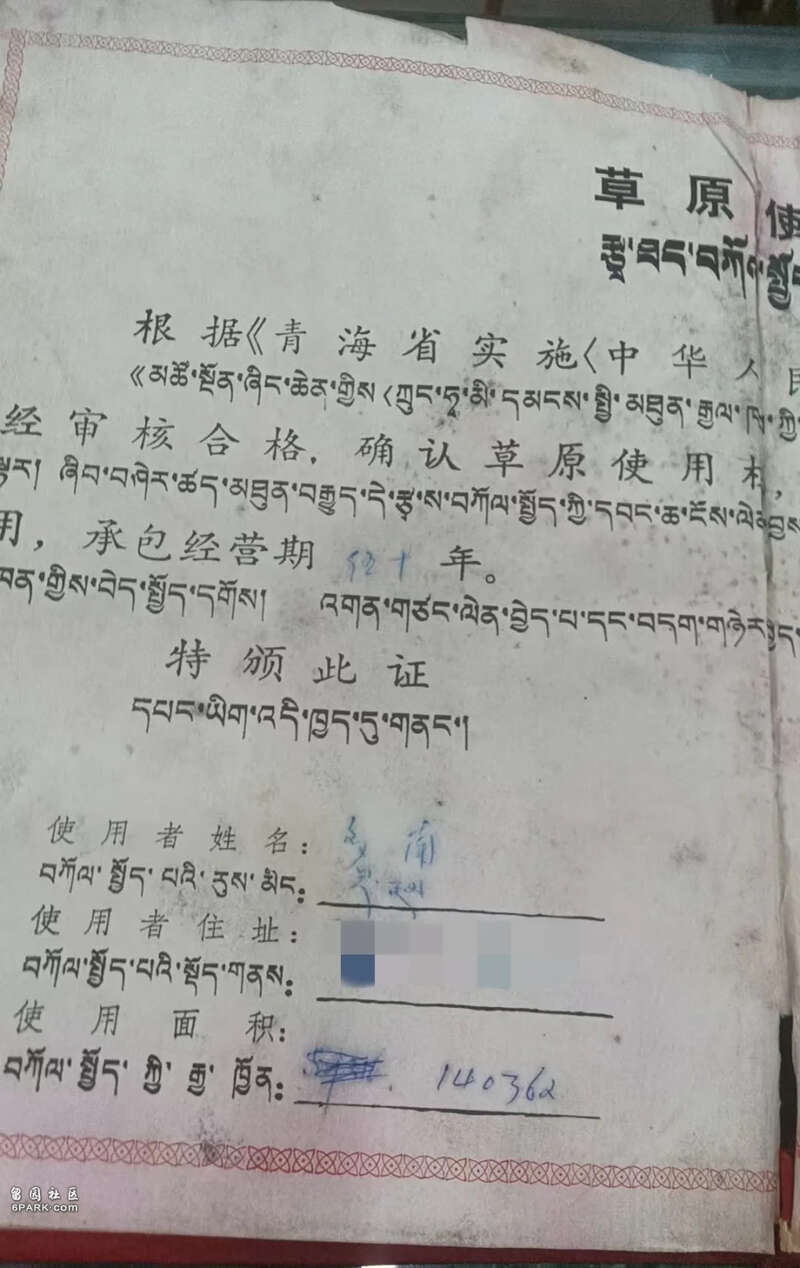 草原使
རྩྭ་ཐང་བཀོལ་སྤྱོད
根据《青海省实施〈中华人民
《མཚོ་སྔོན་ཞིང་ཆེན་གྱིས〈ཀྲུང་ཧྭ་མི་དམངས་སྤྱི་མཐུན་རྒྱལ་ཁབ་ཀྱི
经审核合格，确认草原使用
ལྟར། ཞིབ་བཤེར་ཚད་མཐུན་བརྒྱུད་དེ་རྩྭ་ས་བཀོལ་སྤྱོད་ཀྱི་དབང་ཆ་ངོས་ལེན་བྱས
用，承包经营期 年。
ཁན་གྱིས་བེད་སྤྱོད་དགོས། འགན་གཙང་ལེན་བྱེད་པ་དང་བདག་གཉེར
特颁此证
དཔང་ཡིག་འདི་ཁྱད་དུ་གནང་།
使用者姓名： 南
བཀོལ་སྤྱོད་པའི་རུས་མིང：
使用者住址：
བཀོལ་སྤྱོད་པའི་སྡོད་གནས：
使用面积：
བཀོལ་སྤྱོད་ཀྱི་རྒྱ་ཁྱོན： 140362
留园社区
6PARK.COM